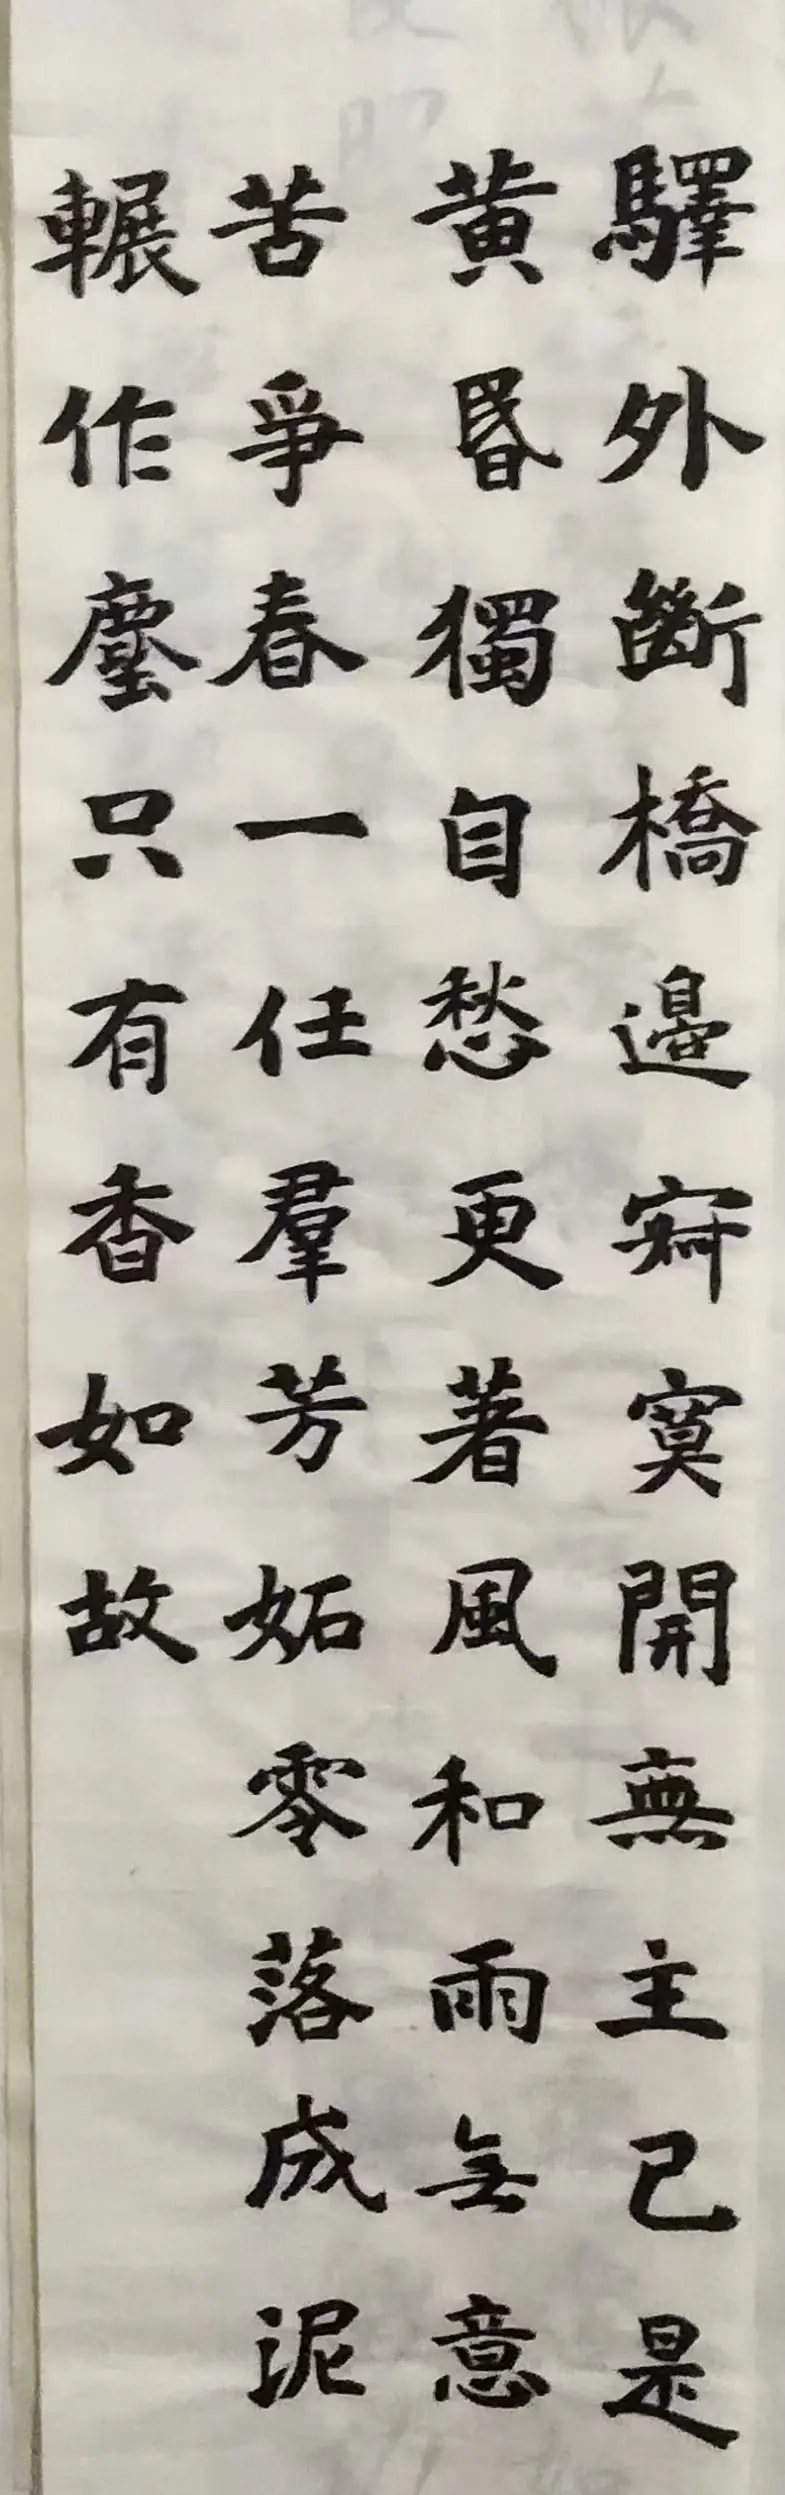 驛外斷橋邊寂寞開無主已是
黃昬獨自愁更著風和雨無意
苦爭春一任羣芳妬零落成泥
輾作塵只有香如故